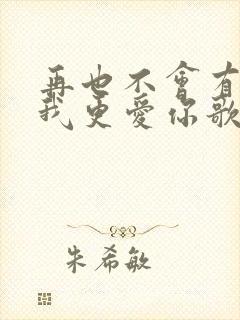 再也不會有
我更愛你歌
朱希敏